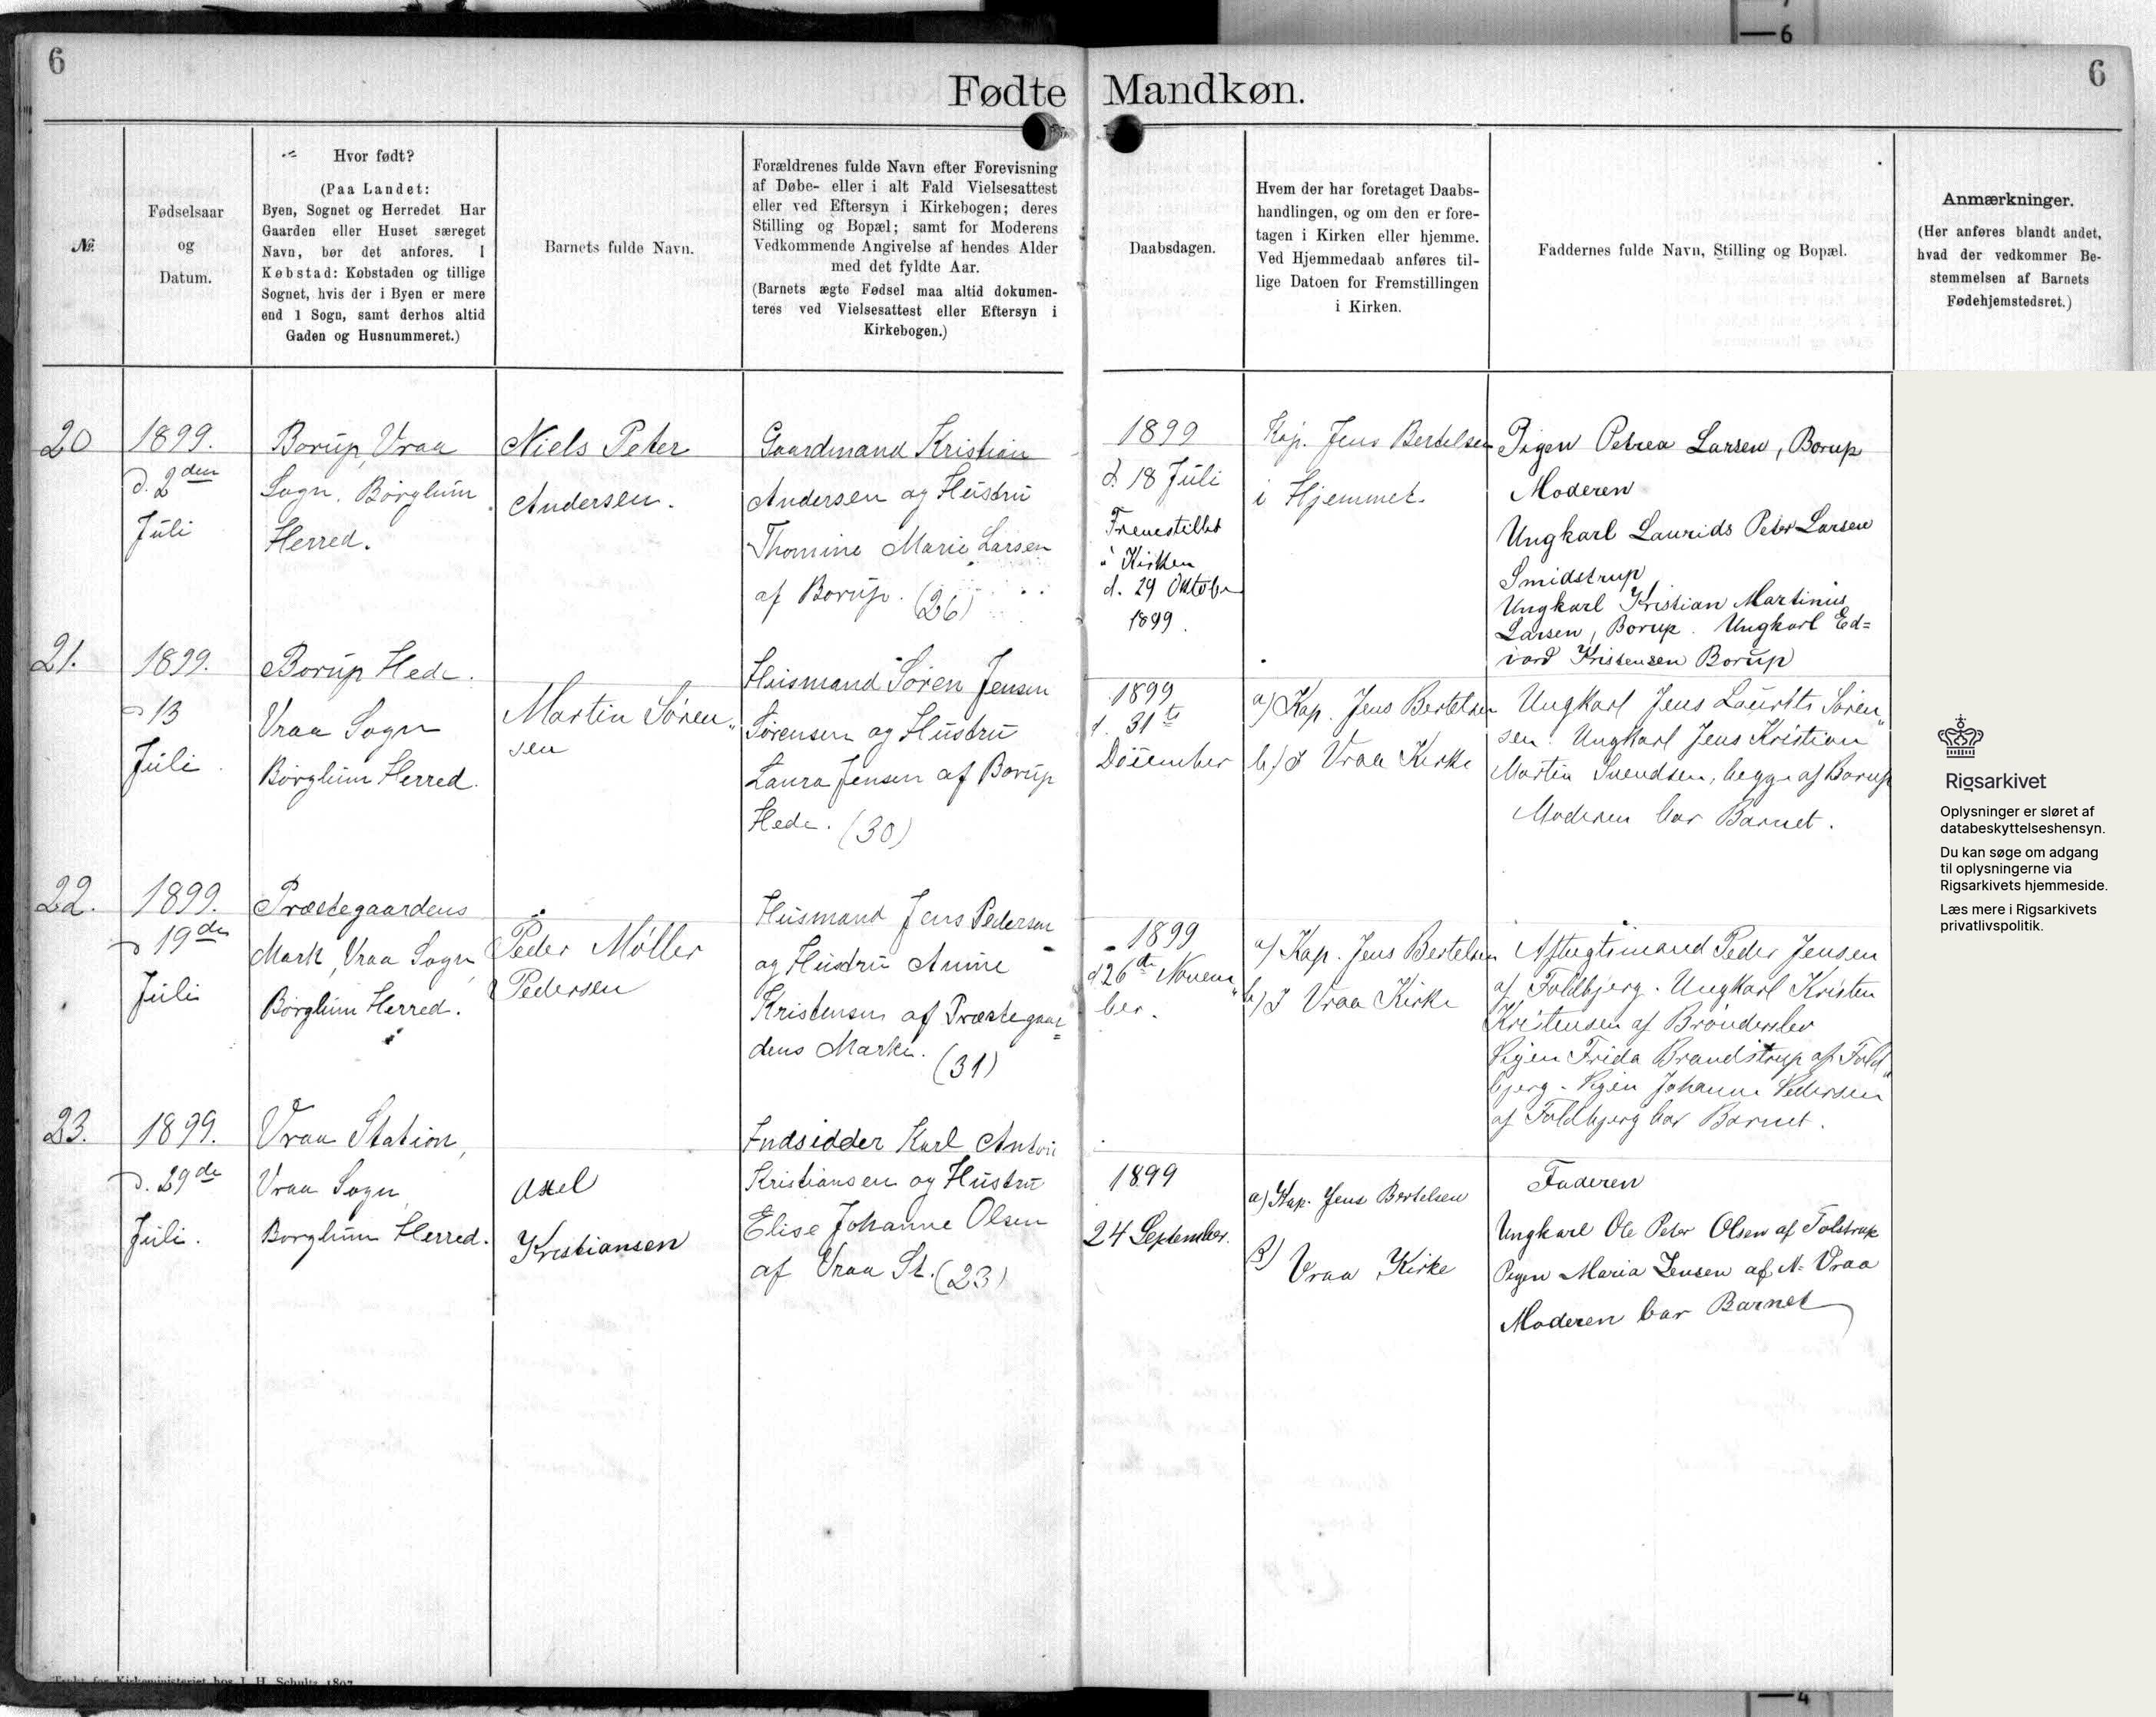 6
Fødte
Mandkøn.
6
№
Fødselsaar
og
Datum.
Hvor født?
(Paa Landet:
Byen, Sognet og Herredet Har
Gaarden eller Huset særeget
Navn, bør det anføres. I
Købstad: Købstaden og tillige
Sognet, hvis der i Byen er mere
end 1 Sogn, samt derhos altid
Gaden og Husnummeret.)
Barnets fulde Navn.
Forældrenes fulde Navn efter Forevisning
af Døbe- eller i alt Fald Vielsesattest
eller ved Eftersyn i Kirkebogen; deres
Stilling og Bopæl; samt for Moderens
Vedkommende Angivelse af hendes Alder
med det fyldte Aar.
(Barnets ægte Fødsel maa altid dokumen-
teres ved Vielsesattest eller Eftersyn i
Kirkebogen.)
Daabsdagen.
Hvem der har foretaget Daabs-
handlingen, og om den er fore-
tagen i Kirken eller hjemme.
Ved Hjemmedaab anføres til-
lige Datoen for Fremstillingen
i Kirken.
Faddernes fulde Navn, Stilling og Bopæl.
Anmærkninger.
(Her anføres blandt andet,
hvad der vedkommer Be-
stemmelsen af Barnets
Fødehjemstedsret.)
20
1899.
d. 2den
Juli
Borup, Vraa
Sogn, Børglum
Herred.
Niels Peter
Andersen.
Gaardmand Kristian
Andersen og Hustru
Thomine Marie Larsen
af Borup. (26)
1899
d. 18 Juli
Fremstillet
i Kirken
d. 29 Oktober
1899.
Kap. Jens Bertelsen
i Hjemmet.
Pigen Petrea Larsen, Borup
Moderen
Ungkarl Laurids Peter Larsen
Smidstrup
Ungkarl Kristian Martinus
Larsen, Borup. Ungkarl Ed=
vard Kristensen Borup
21.
1899.
d 13
Juli
Borup Hede.
Vraa Sogn
Børglum Herred.
Martin Søren„
sen
Husmand Søren Jensen
Sørensen og Hustru
Laura Jensen af Borup
Hede. (30)
1899
d. 31te
December
a) Kap. Jens Bertelsen
b) I Vraa Kirke
Ungkarl Jens Lauritz Søren„
sen. Ungkarl Jens Kristian
Martin Svendsen, begge af Borup
Moderen bar Barnet.
22.
1899.
d 19de
Juli
Præstegaardens
Mark, Vraa Sogn,
Børglum Herred.
Peder Møller
Pedersen
Husmand Jens Pedersen
og Hustru Anine
Kristensen af Præstegaar=
dens Marke. (31)
1899
d 26de Novem„
ber.
a) Kap. Jens Bertelsen
b) I Vraa Kirke
Aftægtsmand Peder Jensen
af Foldbjerg. Ungkarl Kristen
Kristensen af Brønderslev
Pigen Frida Brandstrup af Fold„
bjerg. Pigen Johanne Pedersen
af Foldbjerg bar Barnet.
23.
1899.
d. 29de
Juli.
Vraa Station,
Vraa Sogn,
Børglum Herred.
Axel
Kristiansen
Indsidder Karl Anton
Kristiansen og Hustru
Elise Johanne Olsen
af Vraa St. (23)
1899
24 September.
a) Kap. Jens Bertelsen
B) Vraa Kirke
Faderen
Ungkarl Ole Peter Olsen af Tolstrup
Pigen Maria Jensen af N. Vraa
Moderen bar Barnet
Rigsarkivet
Oplysninger er sløret af
databeskyttelseshensyn.
Du kan søge om adgang
til oplysningerne via
Rigsarkivets hjemmeside.
Læs mere i Rigsarkivets
privatlivspolitik.